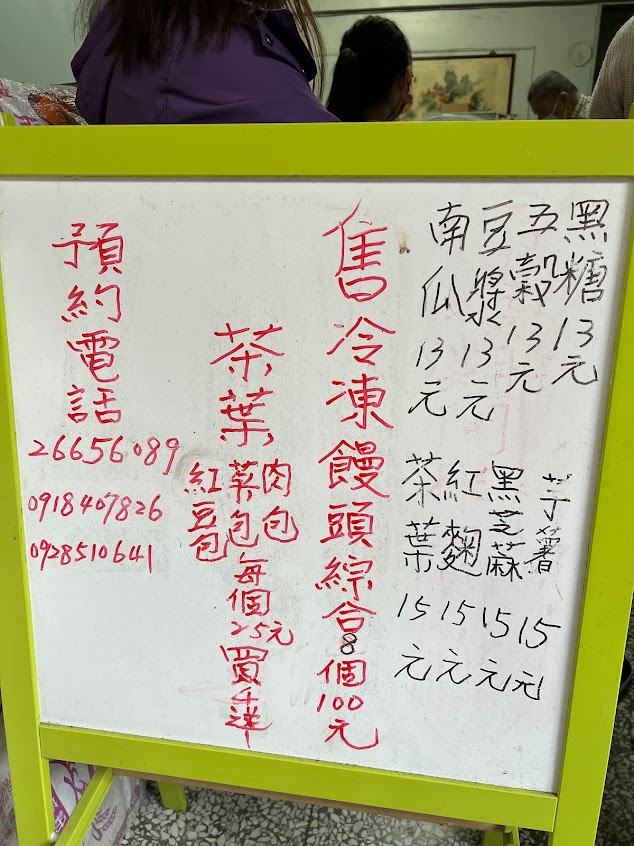 黑糖13元
五穀13元
豆漿13元
南瓜13元
芋薯15元
黑芝麻15元
紅麴15元
茶葉15元
售冷凍饅頭綜合8個100元
茶葉
肉包
菜包
紅豆包
每個25元
買4送1
預約電話
26656089
0918407826
0928510641